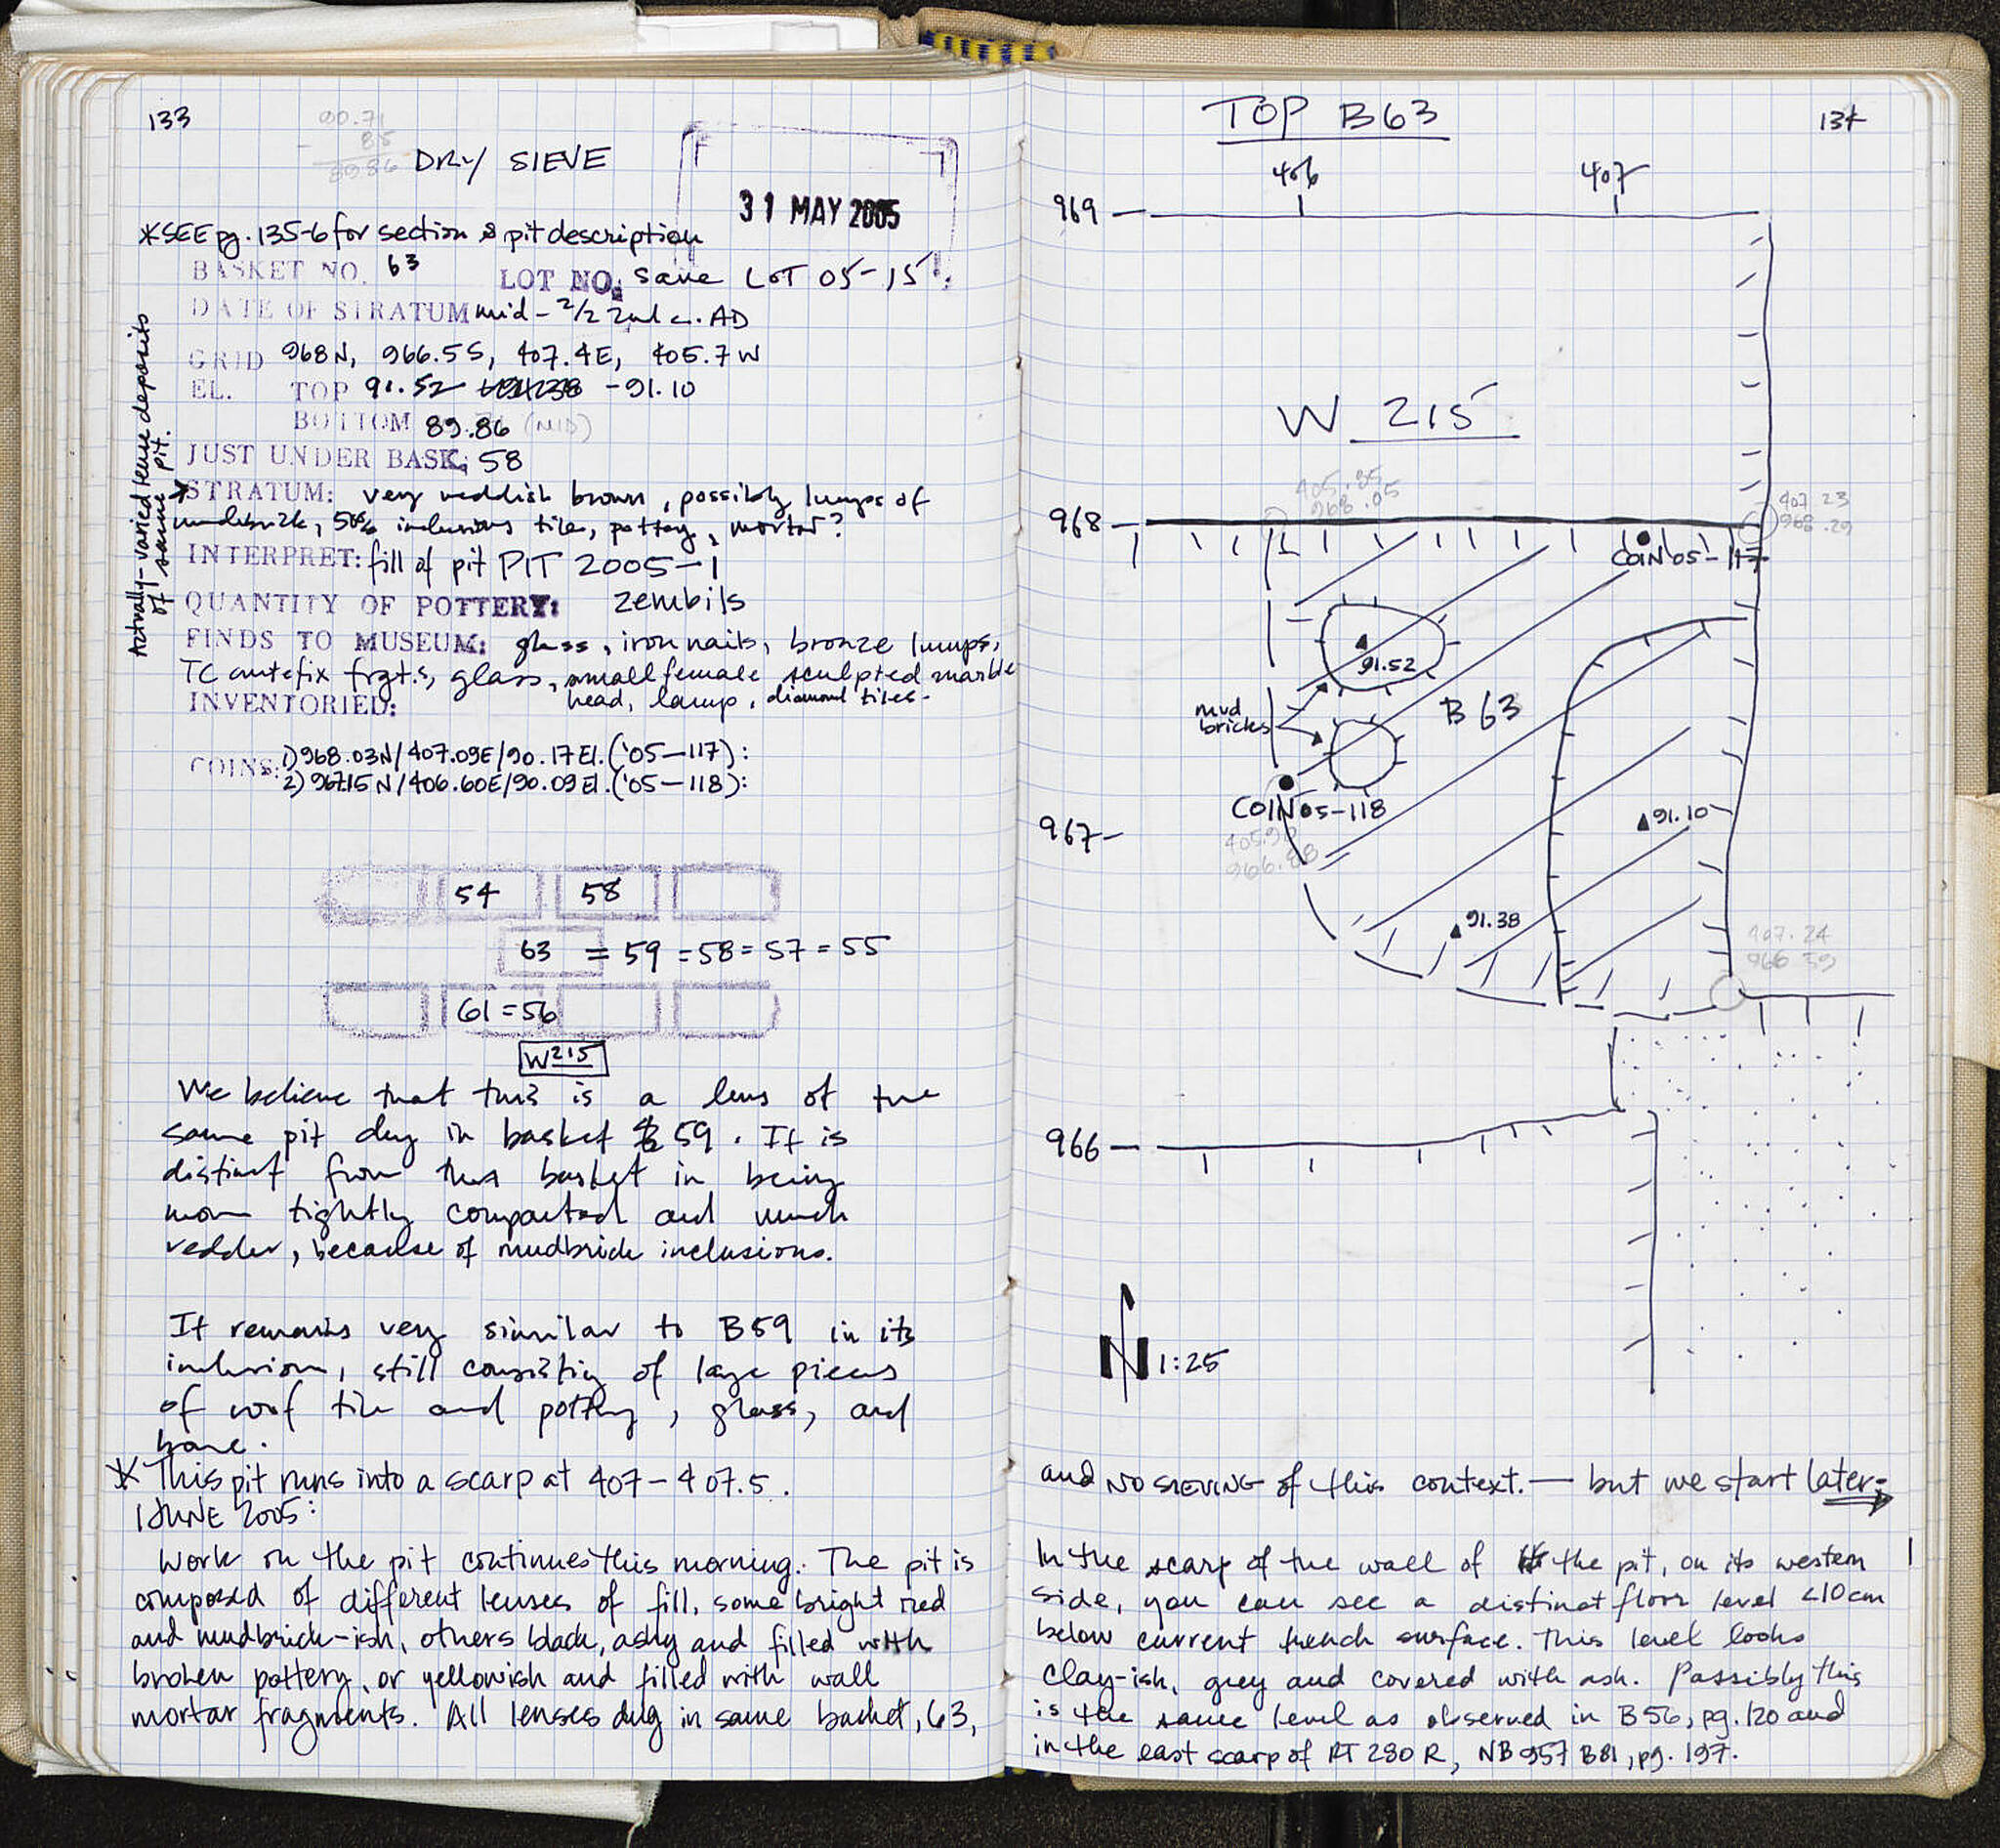 133
90.71
85
89.86
DRY SIEVE
31 MAY 2005
*SEE pg. 135-6 for section & pit description
BASKET NO. 63 LOT NO. Save LOT 05-15
DATE OF STRATUM mid - 2/2 2nd c. AD
GRID 968N, 966.5S, 407.4E, 405.7W
EL. TOP 91.52 -91.10
BOTTOM 89.86 (MID)
JUST UNDER BASK. 58
STRATUM: very reddish brown, possibly lumps of
mudbrick, 50% inclusions tile, pottery, mortar?
Actually-varied lense deposits
of same pit.
INTERPRET: fill of pit PIT 2005-1
QUANTITY OF POTTERY: zembils
FINDS TO MUSEUM: glass, iron nails, bronze lumps,
TC antefix frgt.s, glass, small female sculpted marble
head, lamp, diamond tiles-
INVENTORIED:
COINS: 1) 968.03N/407.09E/90.17El. ('05-117):
2) 967.15N/406.60E/90.09El. ('05-118):
54 58
63 = 59 = 58 = 57 = 55
61 = 56
W215
We believe that this is a lens of the
same pit dug in basket 59. It is
distinct from this basket in being
more tightly compacted and much
redder, because of mudbrick inclusions.
It remains very similar to B59 in its
inclusion, still consisting of large pieces
of roof tile and pottery, glass, and
bone.
* This pit runs into a scarp at 407-407.5.
1 JUNE 2005:
Work on the pit continues this morning. The pit is
composed of different lenses of fill, some bright red
and mudbrick-ish, others black, ashy and filled with
broken pottery, or yellowish and filled with wall
mortar fragments. All lenses dug in same basket, 63,
TOP B63
134
406 407
969
W 215
405.85
968.05
407.23
968.29
968
COIN 05-117
91.52
mud
bricks
B 63
COIN 05-118
967
405.90
966.88
91.10
91.38
407.24
966.39
966
N 1:25
and NO SIEVING of this context. — but we start later:
In the scarp of the wall of the pit, on its western
side, you can see a distinct floor level <10cm
below current trench surface. This level looks
clay-ish, grey and covered with ash. Possibly this
is the same level as observed in B56, pg. 120 and
in the east scarp of RT 290 R, NB 957 B81, pg. 197.